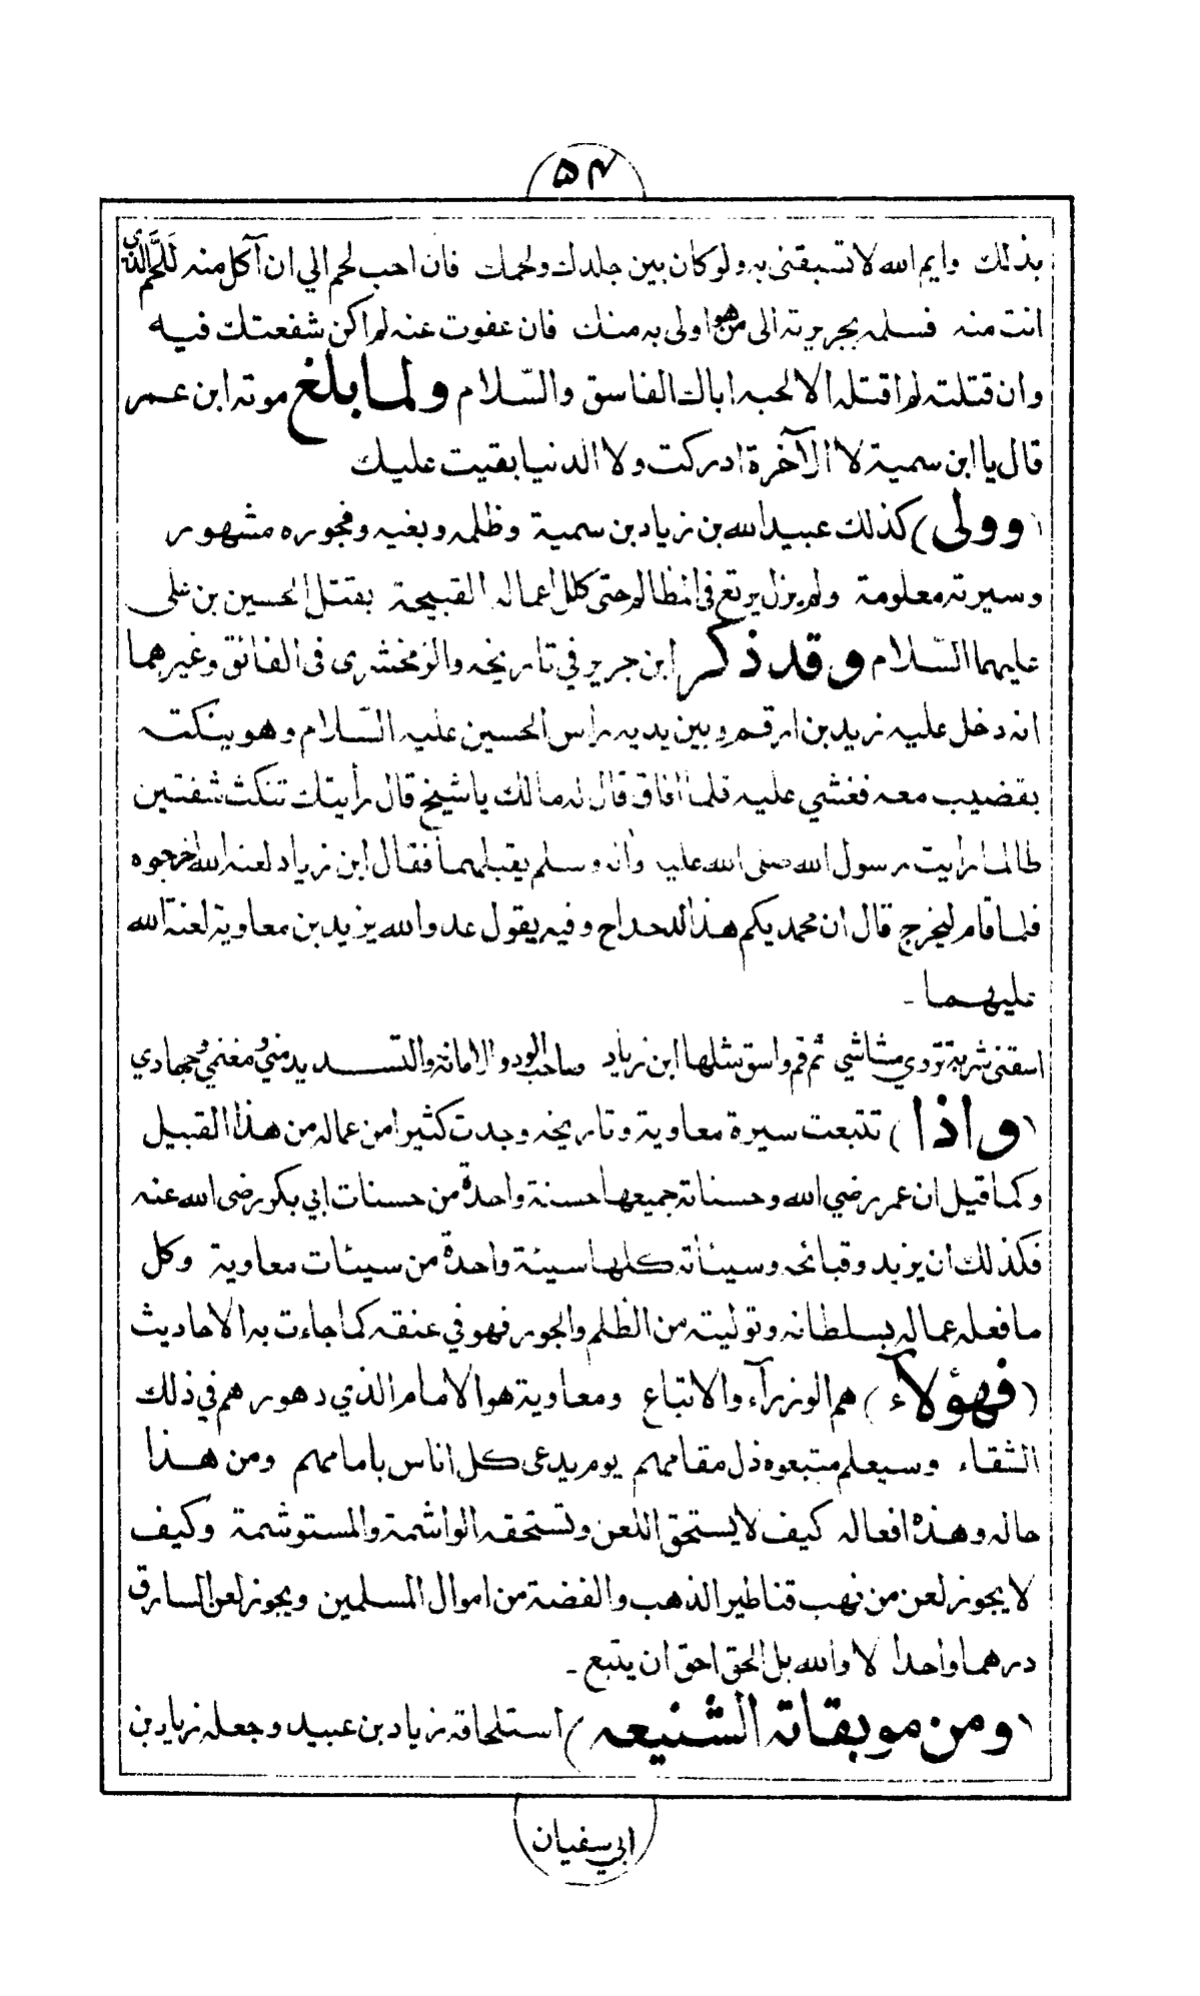 ٥٤
بذلك وايم الله لا تسبقنى به ولو كان بين جلدك ولحمك فان احب لحم الي ان آكل منه لَلَّحم الذي
انت منه فسلمه بجريرته الى من هو اولى به منك فان عفوت عنه لم اكن شفعتك فيه
وان قتلته لم اقتله الا لحبه اباك الفاسق والسّلام ولما بلغ موته ابن عمر
قال يا ابن سمية لا الآخرة ادركت ولا الدنيا بقيت عليك
(وولى) كذلك عبيدالله بن زياد بن سمية وظلمه وبغيه وفجوره مشهور
وسيرته معلومة ولم يزل يرتع فى المظالم حتى كلل اعماله القبيحة بقتل الحسين بن على
عليهما السّلام وقد ذكر ابن جرير في تاريخه والزمخشرى فى الفائق وغيرهما
انه دخل عليه زيد بن ارقم وبين يديه رأس الحسين عليه السّلام وهو ينكته
بقضيب معه فغشي عليه فلما افاق قال له مالك يا شيخ قال رأيتك تنكث شفتين
طالما رايت رسول الله صلى الله عليه وآله وسلم يقبلهما فقال ابن زياد لعنه الله اخرجوه
فلما قام ليخرج قال ان محمديكم هذا لدحداح وفيه يقول عدو الله يزيد بن معاوية لعنة الله
عليهما -
اسقنى شربة تروي مشاشي ثم قم واسق مثلها ابن زياد صاحب الود والامانة والتسديد مني ومغنمي وجهادي
(واذا) تتبعت سيرة معاوية وتاريخه وجدت كثيرا من عماله من هذا القبيل
وكما قيل ان عمر رضي الله وحسناته جميعها حسنة واحدة من حسنات ابي بكر رضى الله عنه
فكذلك ان يزيد وقبائحه وسيئاته كلها سيئة واحدة من سيئات معاوية وكل
ما فعله عماله بسلطانه وتوليته من الظلم والجور فهو في عنقه كما جاءت به الاحاديث
(فهؤلآء) هم الوزرآء والاتباع ومعاوية هو الامام الذي دهورهم في ذلك
الشقاء وسيعلم متبعوه ذل مقامهم يوم يدعى كل اناس بامامهم ومن هذا
حاله وهذه افعاله كيف لا يستحق اللعن وتستحقه الواشمة والمستوشمة وكيف
لا يجوز لعن من نهب قناطير الذهب والفضة من اموال المسلمين ويجوز لعن السارق
درهما واحدا لا والله بل الحق احق ان يتبع -
(ومن موبقاته الشنيعه) استلحاقه زياد بن عبيد وجعله زياد بن
ابي سفيان